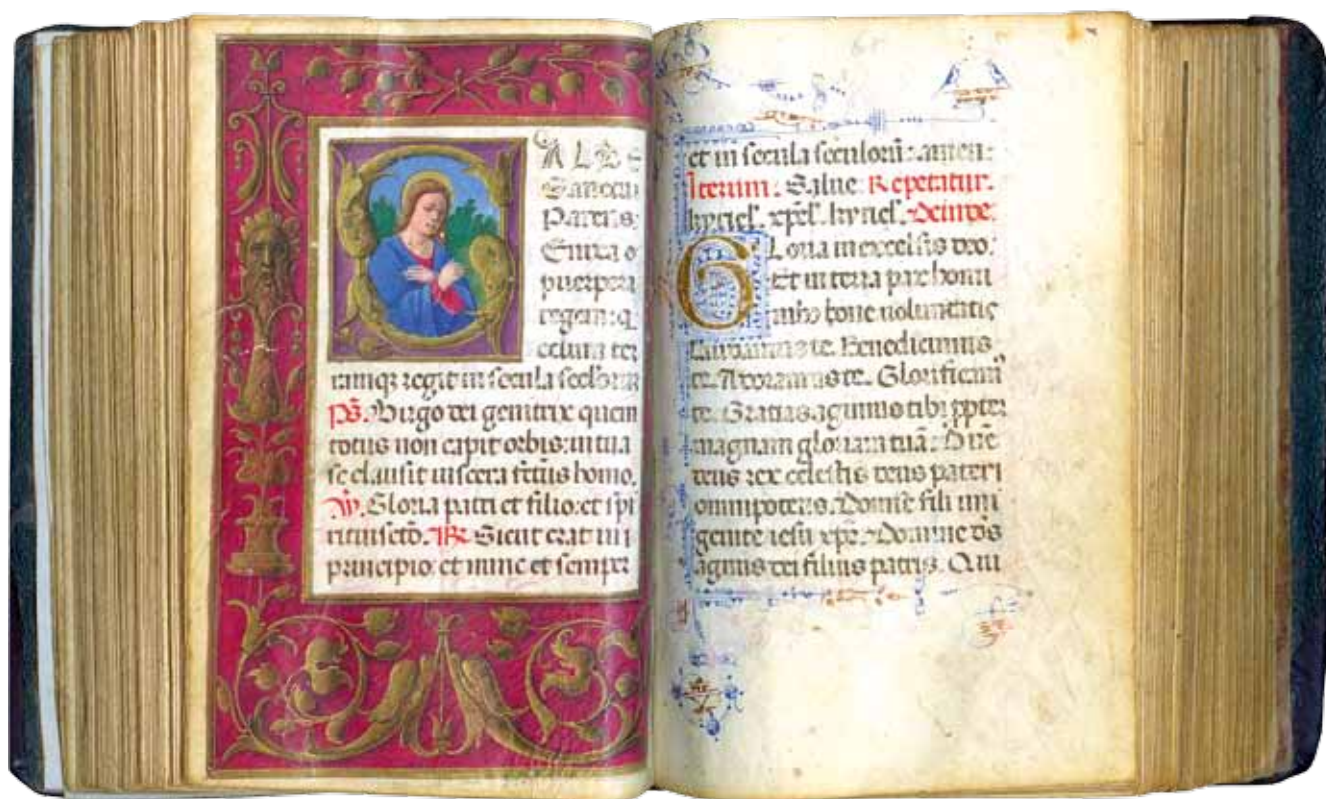 SALVE
Sancta
Parens:
Enixa
puerpera
regem: q
celum ter
ramq; regit in secula seclorum
Ps. Virgo dei genitrix quem
totus non capit orbis: in tua
se clausit viscera fctus homo.
V. Gloria patri et filio: et spi
ritui scto. R. Sicut erat in
principio: et nunc et semper
et in secula seculorū: amen:
Iterum: Salue. Repetatur.
kyriel. xpēl. kyriel. Deinde.
Gloria in excelsis deo:
Et in terra pax homi
nibꝰ bone uoluntatis
Laudamus te. Benedicimus
te. Adoramus te. Glorificamꝰ
te. Gratias agimus tibi ppter
magnam gloriam tuā: Dn̄e
deus rex celestis deus pater
omnipotens. Domīe fili uni
genite iesu xpē. Domine ds̄
agnus dei filius patris. Qui